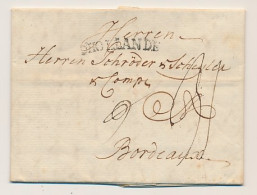 Herren
HOLLANDE
Herren Schröder &
& Comp.
Bordeaux